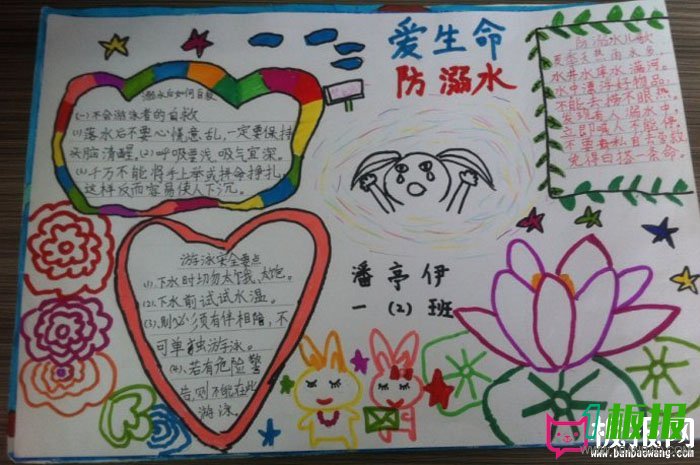 爱生命
防溺水
溺水后如何自救
(一)不会游泳者的自救
(1)落水后不要心慌意乱,一定要保持
头脑清醒。(2)呼吸要浅,吸气宜深。
千万不能将手上举或拼命挣扎,
这样反而容易使人下沉。
防溺水儿歌
夏季天热雨水多,
水井水库水满河。
水中漂浮好物品,
不能去捞不眼热。
发现有人溺水中,
立即喊人不能停。
免得白搭一条命。
游泳安全要点
(1).下水时切勿太饿、太饱。
(2).下水前试试水温。
须有伴相陪,不
可单独游泳。
(4).若有危险警
告,则不能在此
游泳
潘亭伊
一(2)班
板报网
www.banbaowang.com